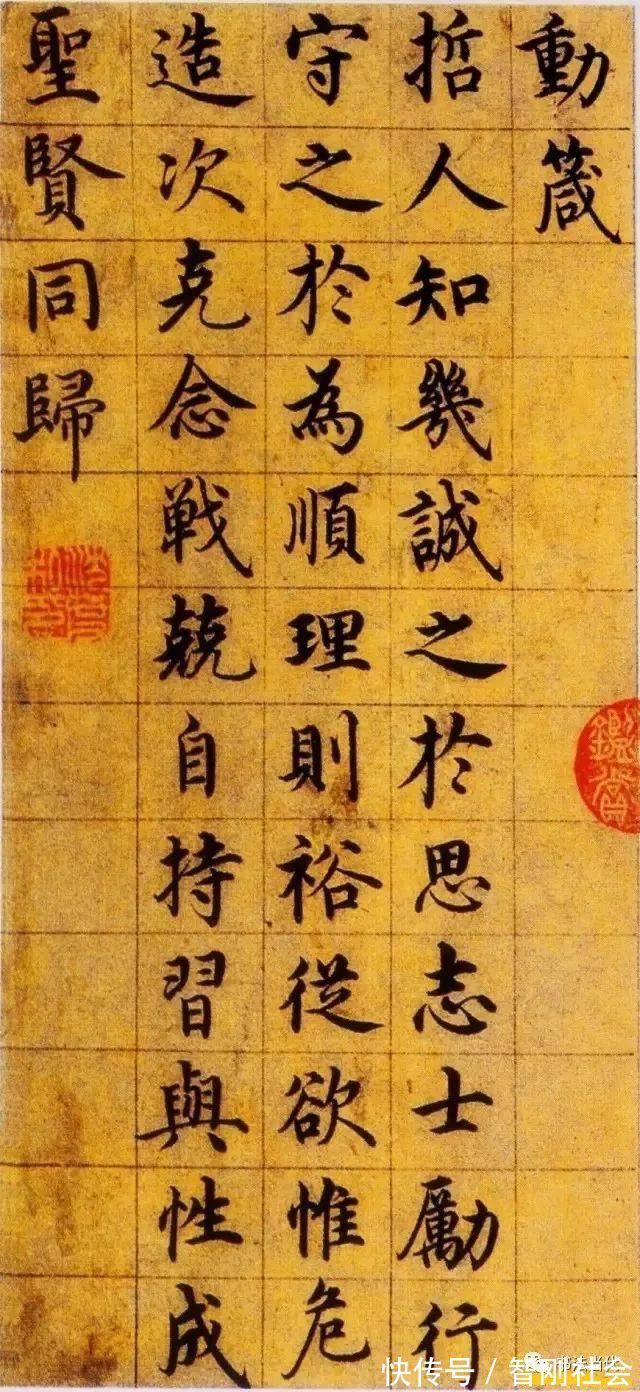 動箴
哲人知幾誠之於思志士勵行
守之於為順理則裕從欲惟危
造次克念戦兢自持習與性成
聖賢同歸
快传号／智刚社会